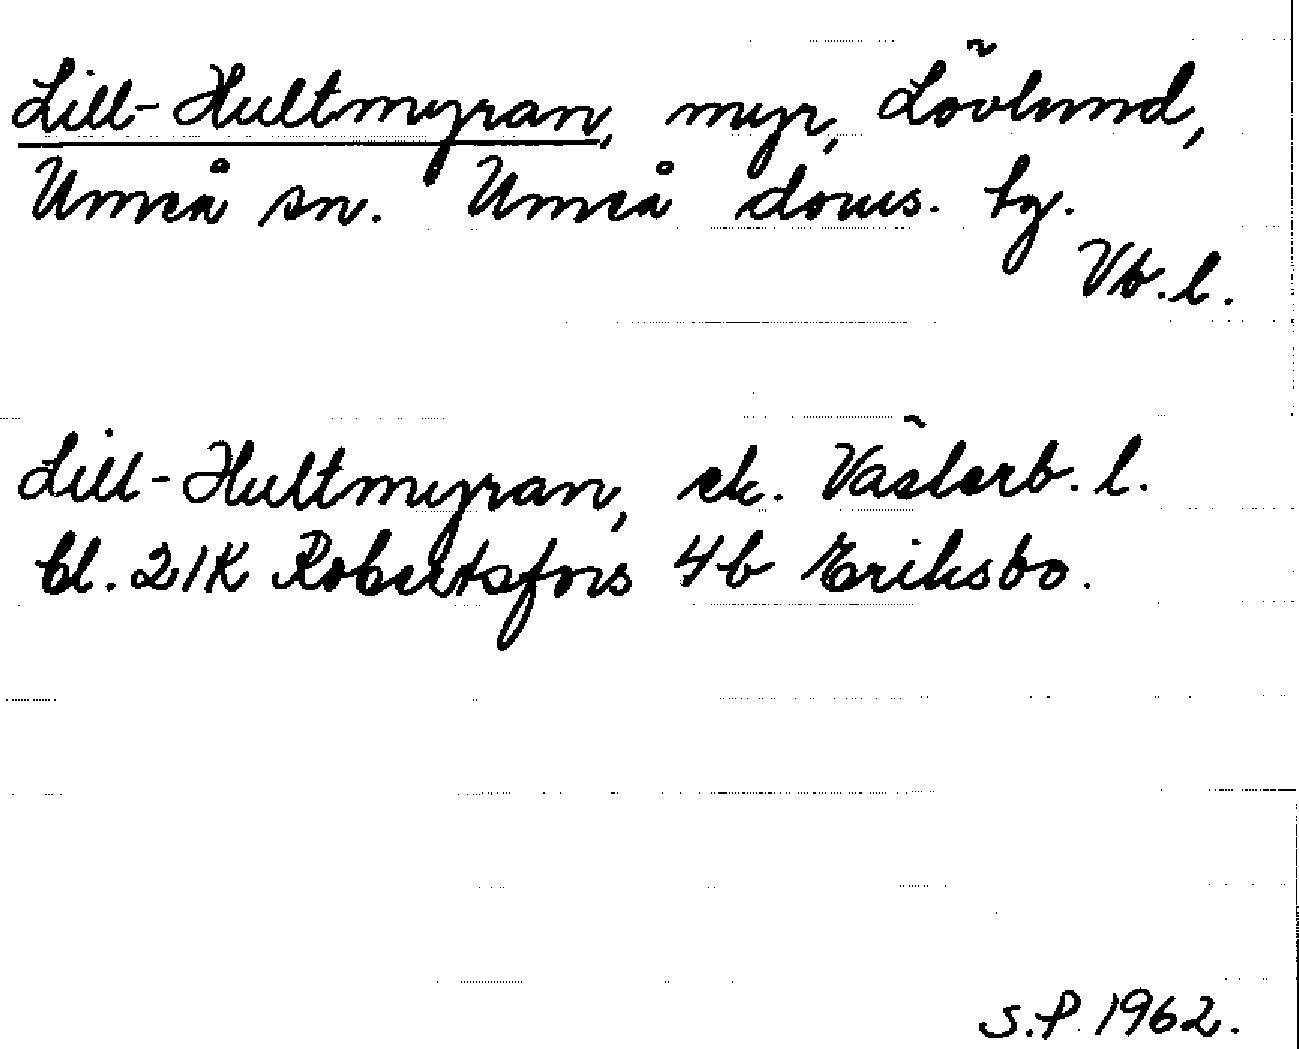 Lill-Hultmyran, myr, Lövlund,
Umeå sn. Umeå doms. tg.
Vb.l.
Lill-Hultmyran, ek. Västerb. l.
bl. 21K Robertsfors 4b Eriksbo.
S.P. 1962.